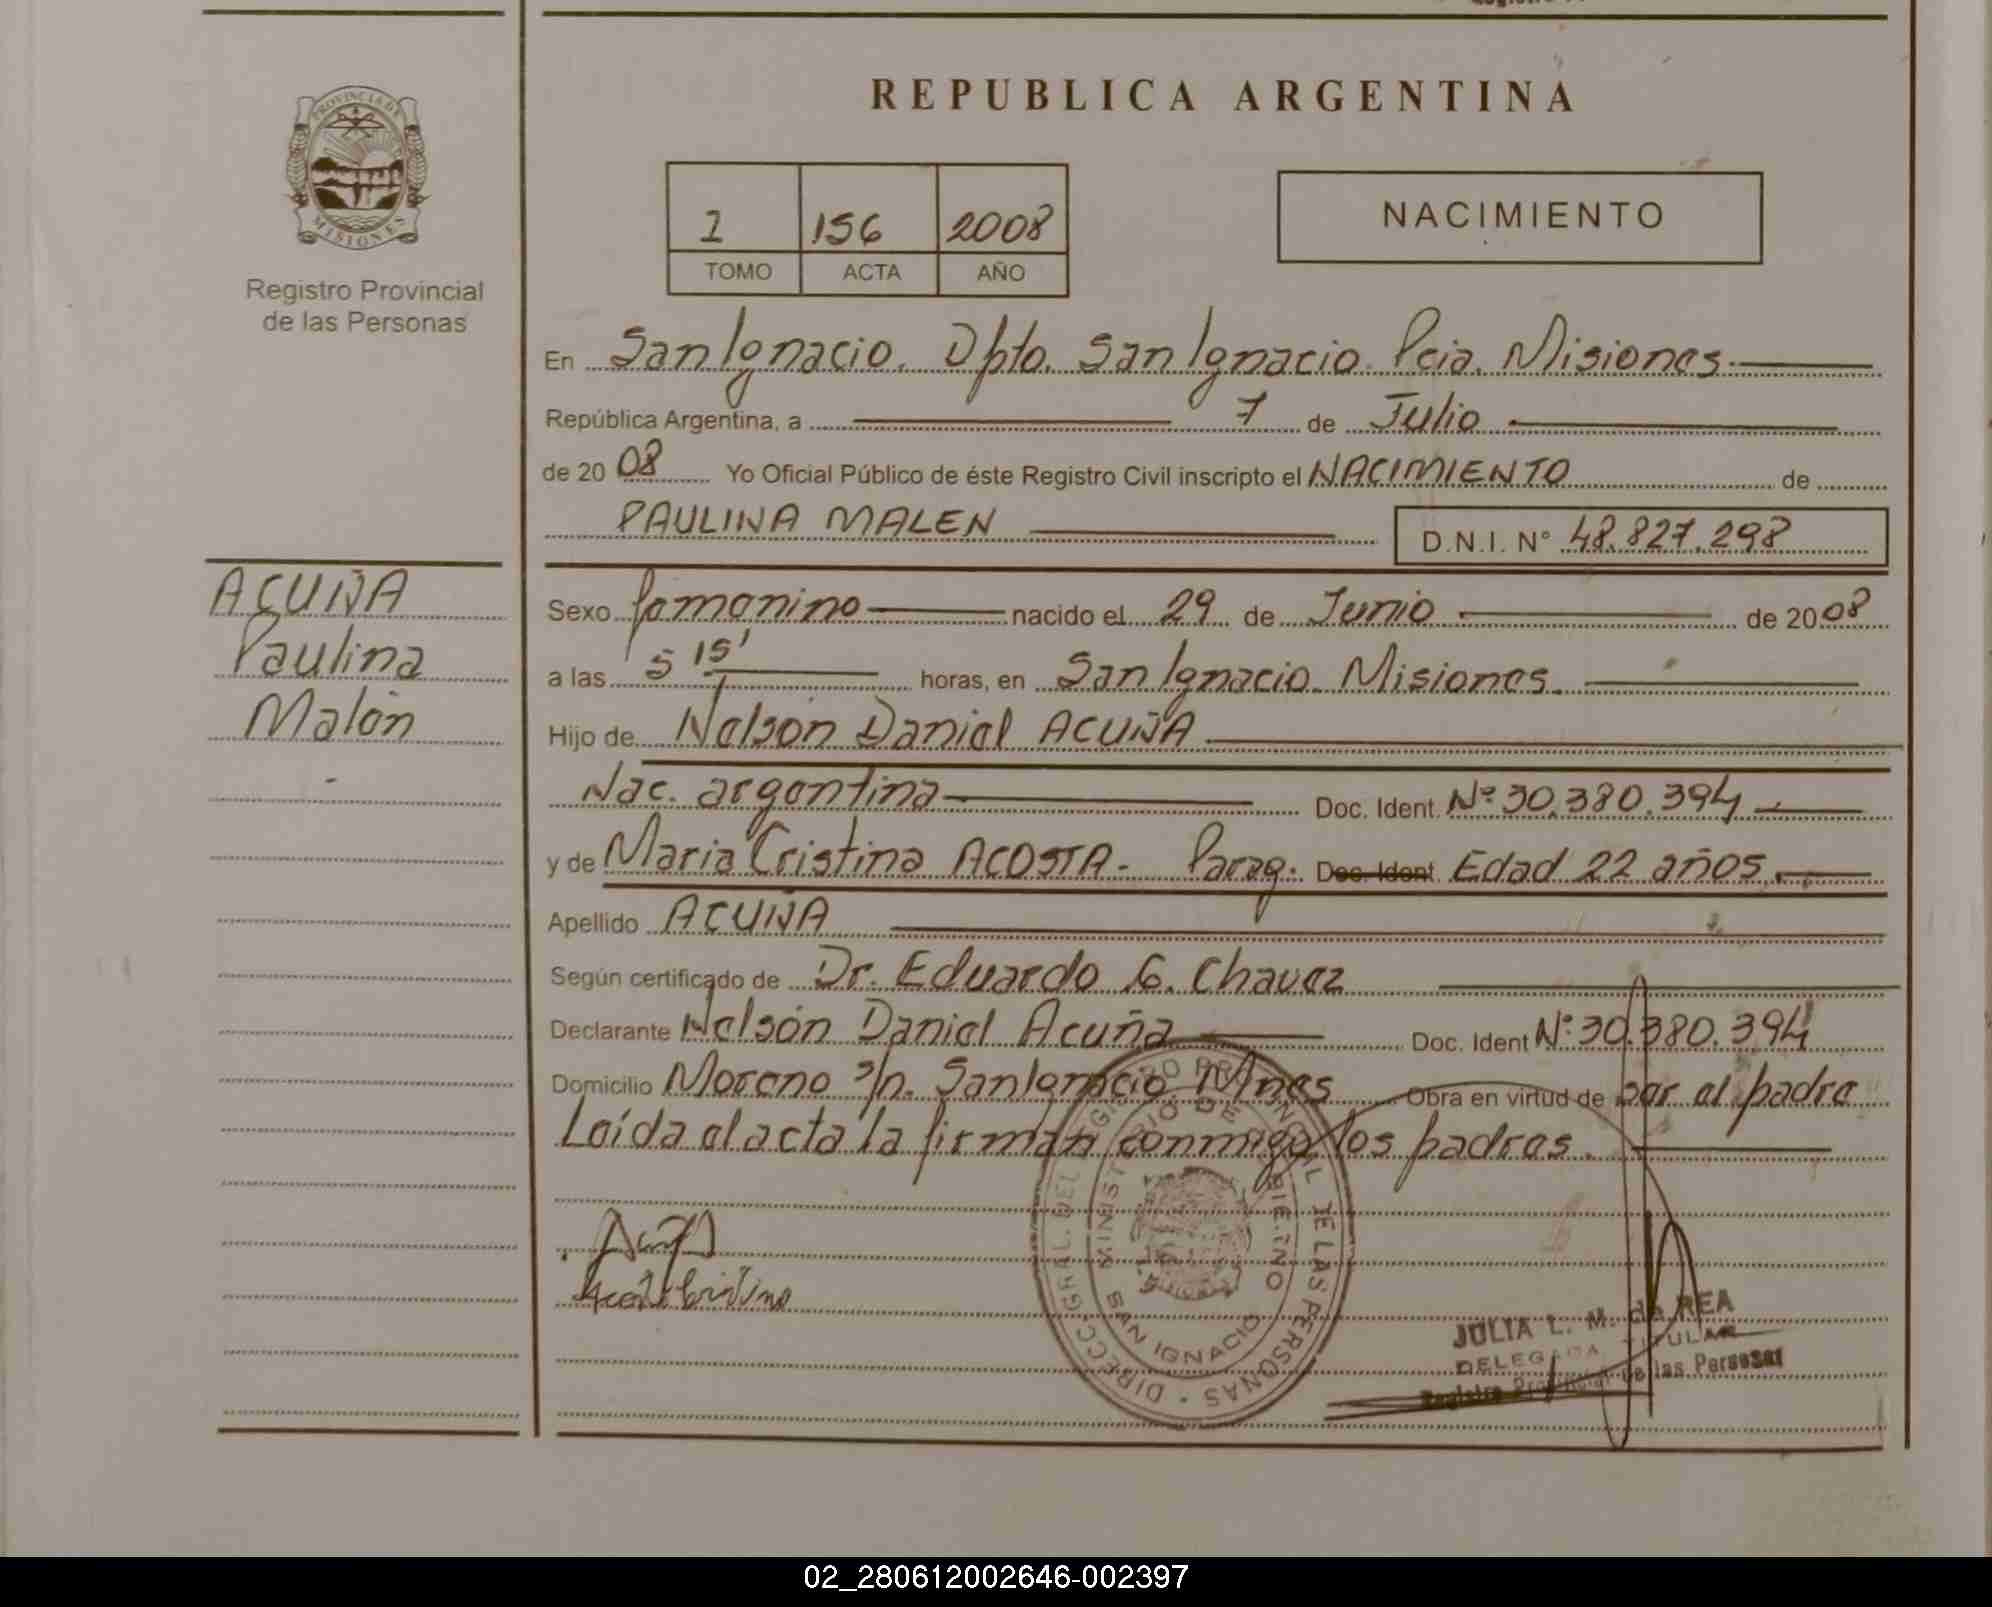 REPUBLICA ARGENTINA
PROVINCIA DE
MISIONES
Registro Provincial
de las Personas
1 156 2008
TOMO ACTA AÑO
NACIMIENTO
En San Ignacio. Dpto. San Ignacio. Pcia. Misiones.
República Argentina, a 7 de Julio
de 20 08 Yo Oficial Público de éste Registro Civil inscripto el NACIMIENTO de
PAULINA MALEN D.N.I. N° 48.827.298
ACUÑA
Paulina
Malén
Sexo femenino nacido el 29 de Junio de 20 08
a las 5 15' horas, en San Ignacio. Misiones.
Hijo de Nelson Daniel ACUÑA
Nac. argentina Doc. Ident. Nº 30.380.394
y de Maria Cristina ACOSTA - Parag. Doc. Ident. Edad 22 años.
Apellido ACUÑA
Según certificado de Dr. Eduardo G. Chavez
Declarante Nelson Daniel Acuña Doc. Ident Nº 30.380.394
Domicilio Moreno s/n. San Ignacio. Mnes Obra en virtud de ser el padre
Leída el acta la firman conmigo los padres.
DIRECC. GRAL. DEL REGISTRO PROVINCIAL DE LAS PERSONAS
MINISTERIO DE GOBIERNO
SAN IGNACIO
JULIA L. M. de REA
DELEGADA TITULAR
Registro Provincial de las Personas
02_280612002646-002397